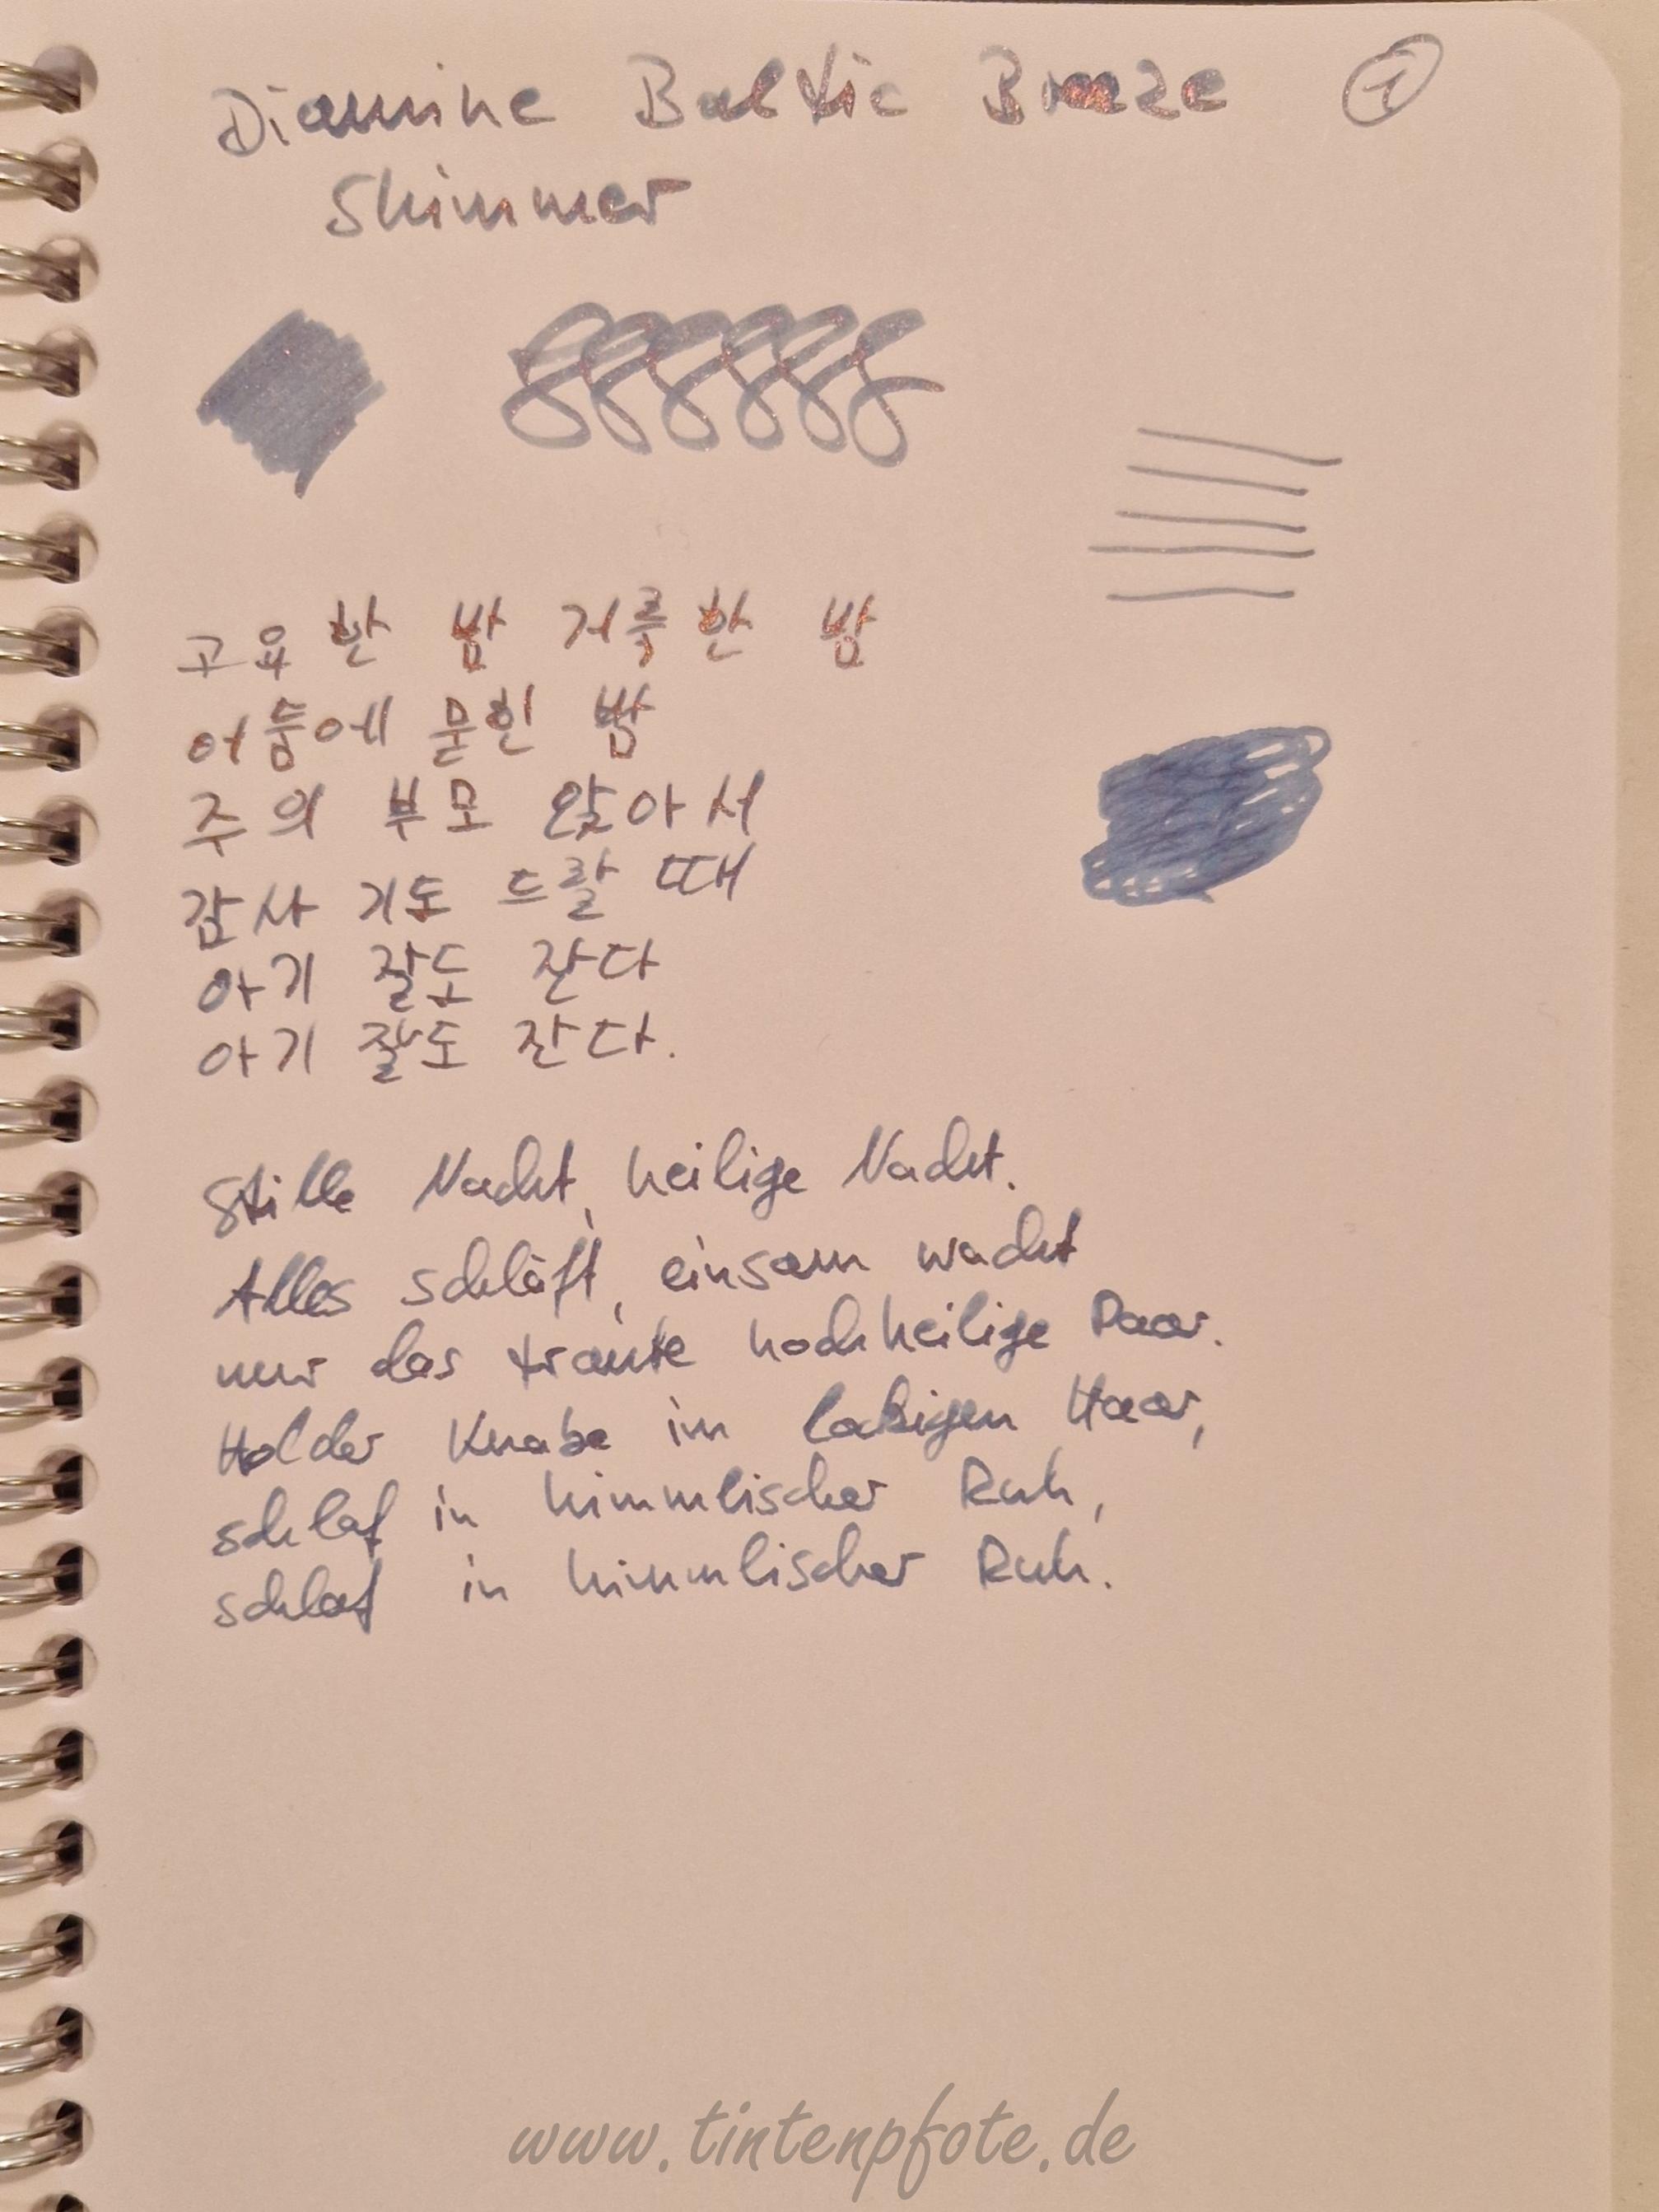 Diamine Baltic Breeze ①
Shimmer
고요한 밤 거룩한 밤
어둠에 묻힌 밤
주의 부모 앉아서
감사 기도 드릴 때
아기 잘도 잔다
아기 잘도 잔다.
Stille Nacht, heilige Nacht.
Alles schläft, einsam wacht
nur das traute hochheilige Paar.
Holder Knabe im lockigen Haar,
schlaf in himmlischer Ruh,
schlaf in himmlischer Ruh.
www.tintenpfote.de